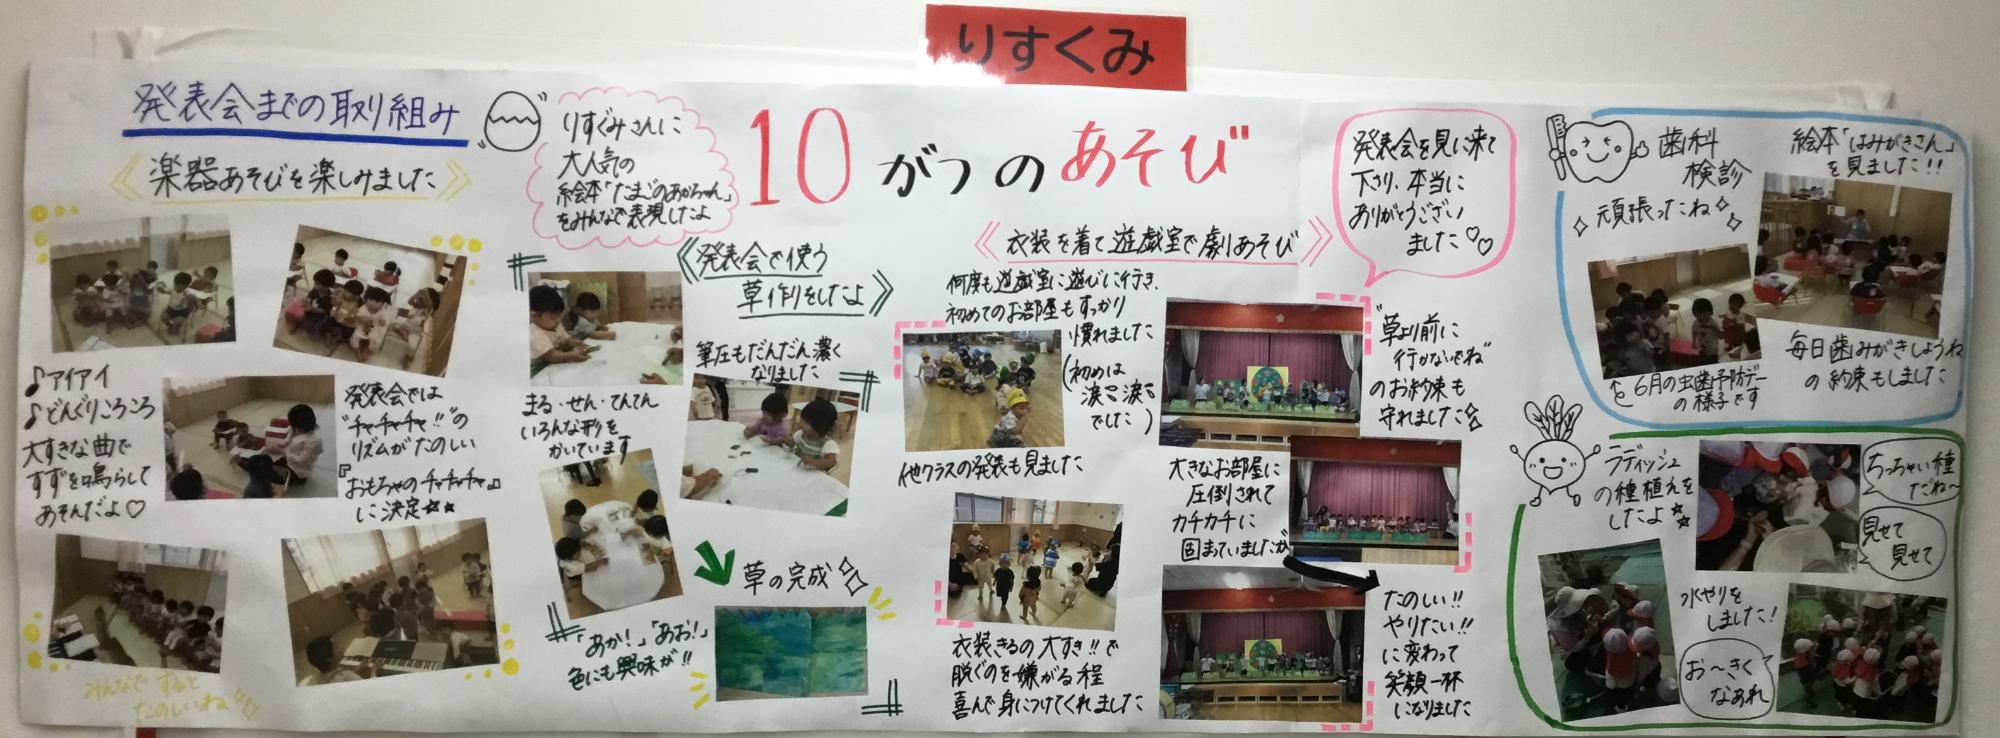 りすくみ
10がつのあそび
発表会までの取り組み
《楽器あそびを楽しみました》
♪アイアイ
♪どんぐりころころ
大すきな曲で
すずを鳴らして
あそんだよ♡
発表会では
"チャチャチャ!!"の
リズムがたのしい
『おもちゃのチャチャチャ』
に決定☆★
みんなですると
たのしいね
りすぐみさんに
大人気の
絵本「たまごのあかちゃん」
をみんなで表現したよ
《発表会で使う
草作りをしたよ》
筆圧もだんだん濃く
なりました
まる・せん・てんてん
いろんな形を
かいています
「あか!」「あお!」
色にも興味が!!
草の完成
《衣装を着て遊戯室で劇あそび》
何度も遊戯室に遊びに行き、
初めてのお部屋もすっかり
慣れました
(初めは
涙、涙
でした)
他クラスの発表も見ました
衣装きるの大すき!!で
脱ぐのを嫌がる程
喜んで身につけてくれました
発表会を見に来て
下さり、本当に
ありがとうござい
ました♡♡
"草より前に
行かないでね"
のお約束も
守れました☆
大きなお部屋に
圧倒されて
カチカチに
固まっていましたが
たのしい!!
やりたい!!
に変わって
笑顔一杯
になりました
歯科
検診
頑張ったね
絵本「はみがきさん」
を見ました!!
毎日歯みがきしようね
の約束もしました
6月の虫歯予防デー
の様子です
ラディッシュ
の種植えを
したよ☆★
ちっちゃい種
だね〜
見せて
見せて
水やりを
しました!
お〜きくて
なあれ